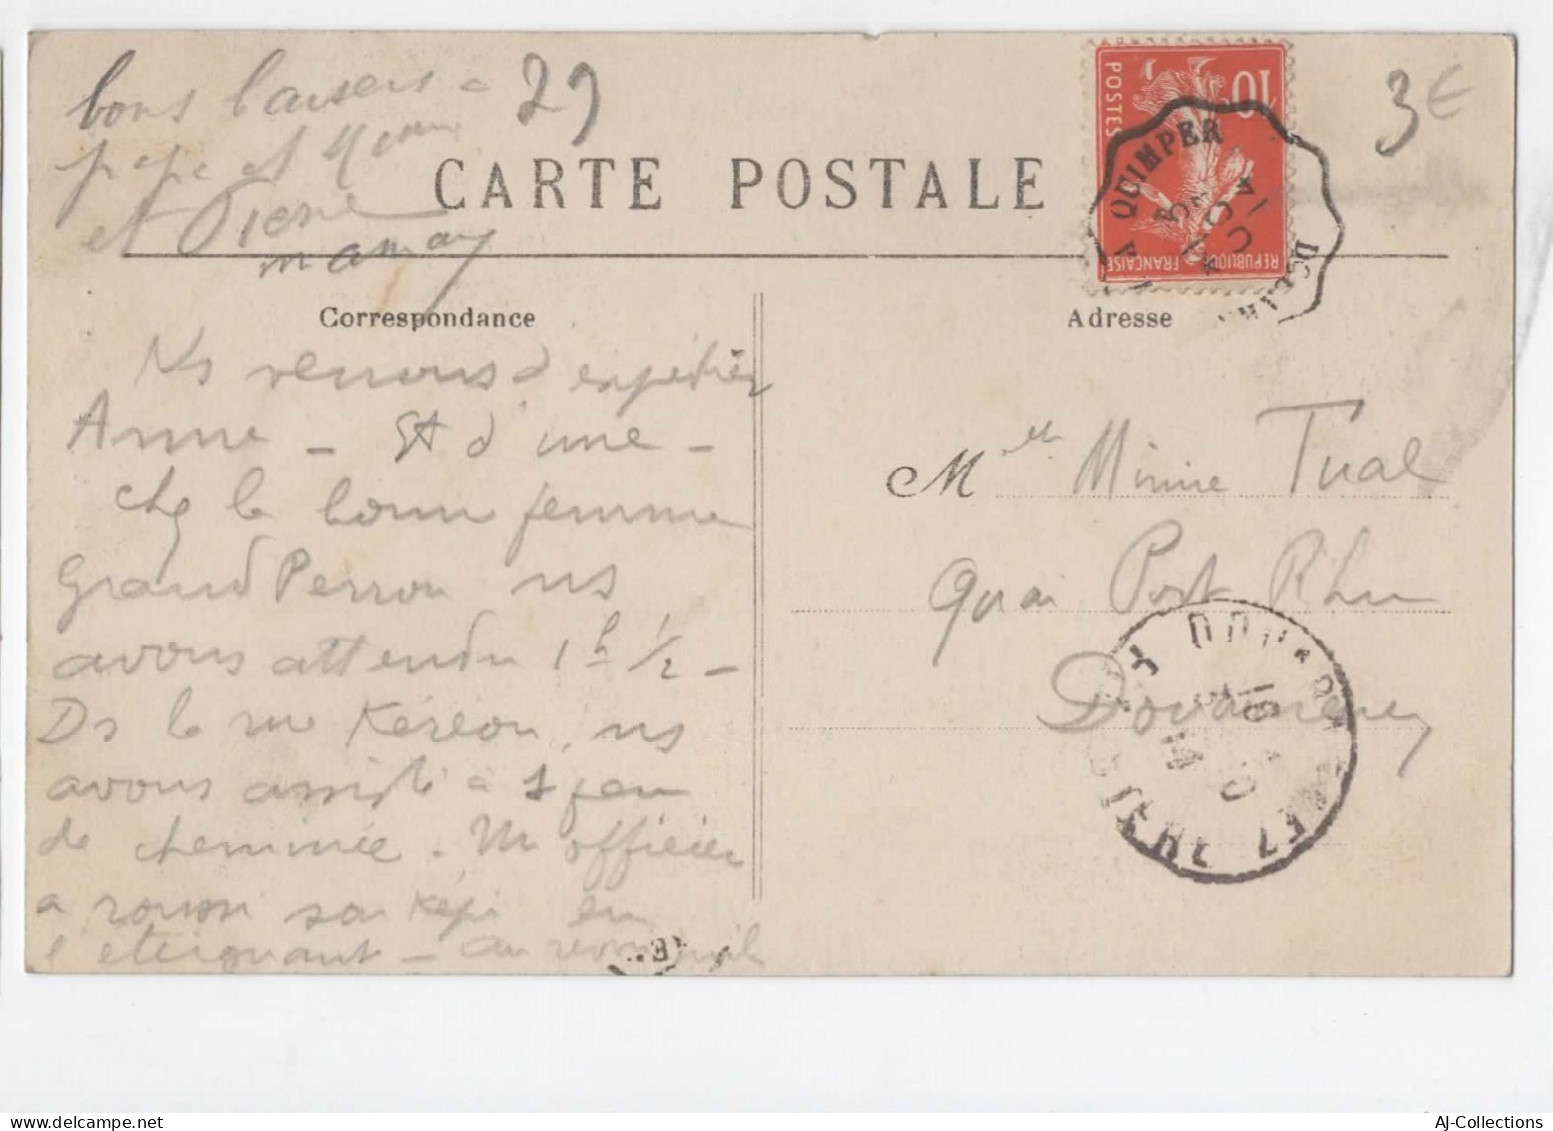 bons baisers à 29
pépé et Mémé
et Pierre
maman
3€
CARTE POSTALE
10
POSTES
REPUBLIQUE
FRANCAISE
QUIMPER
Correspondance
Adresse
Ns venons d'expédier
Anne - Et d'une -
chez la bonne femme
Grand Perron ns
avons attendu 1h 1/2 -
Ds la rue Kéréon, ns
avons assisté à 1 feu
de cheminée. Un officier
a roussi son képi en
l'éteignant - au revoir
Mlle Minie Tual
quai Port Rhu
Douarnenez
14
FINISTERE
AJ-Collections